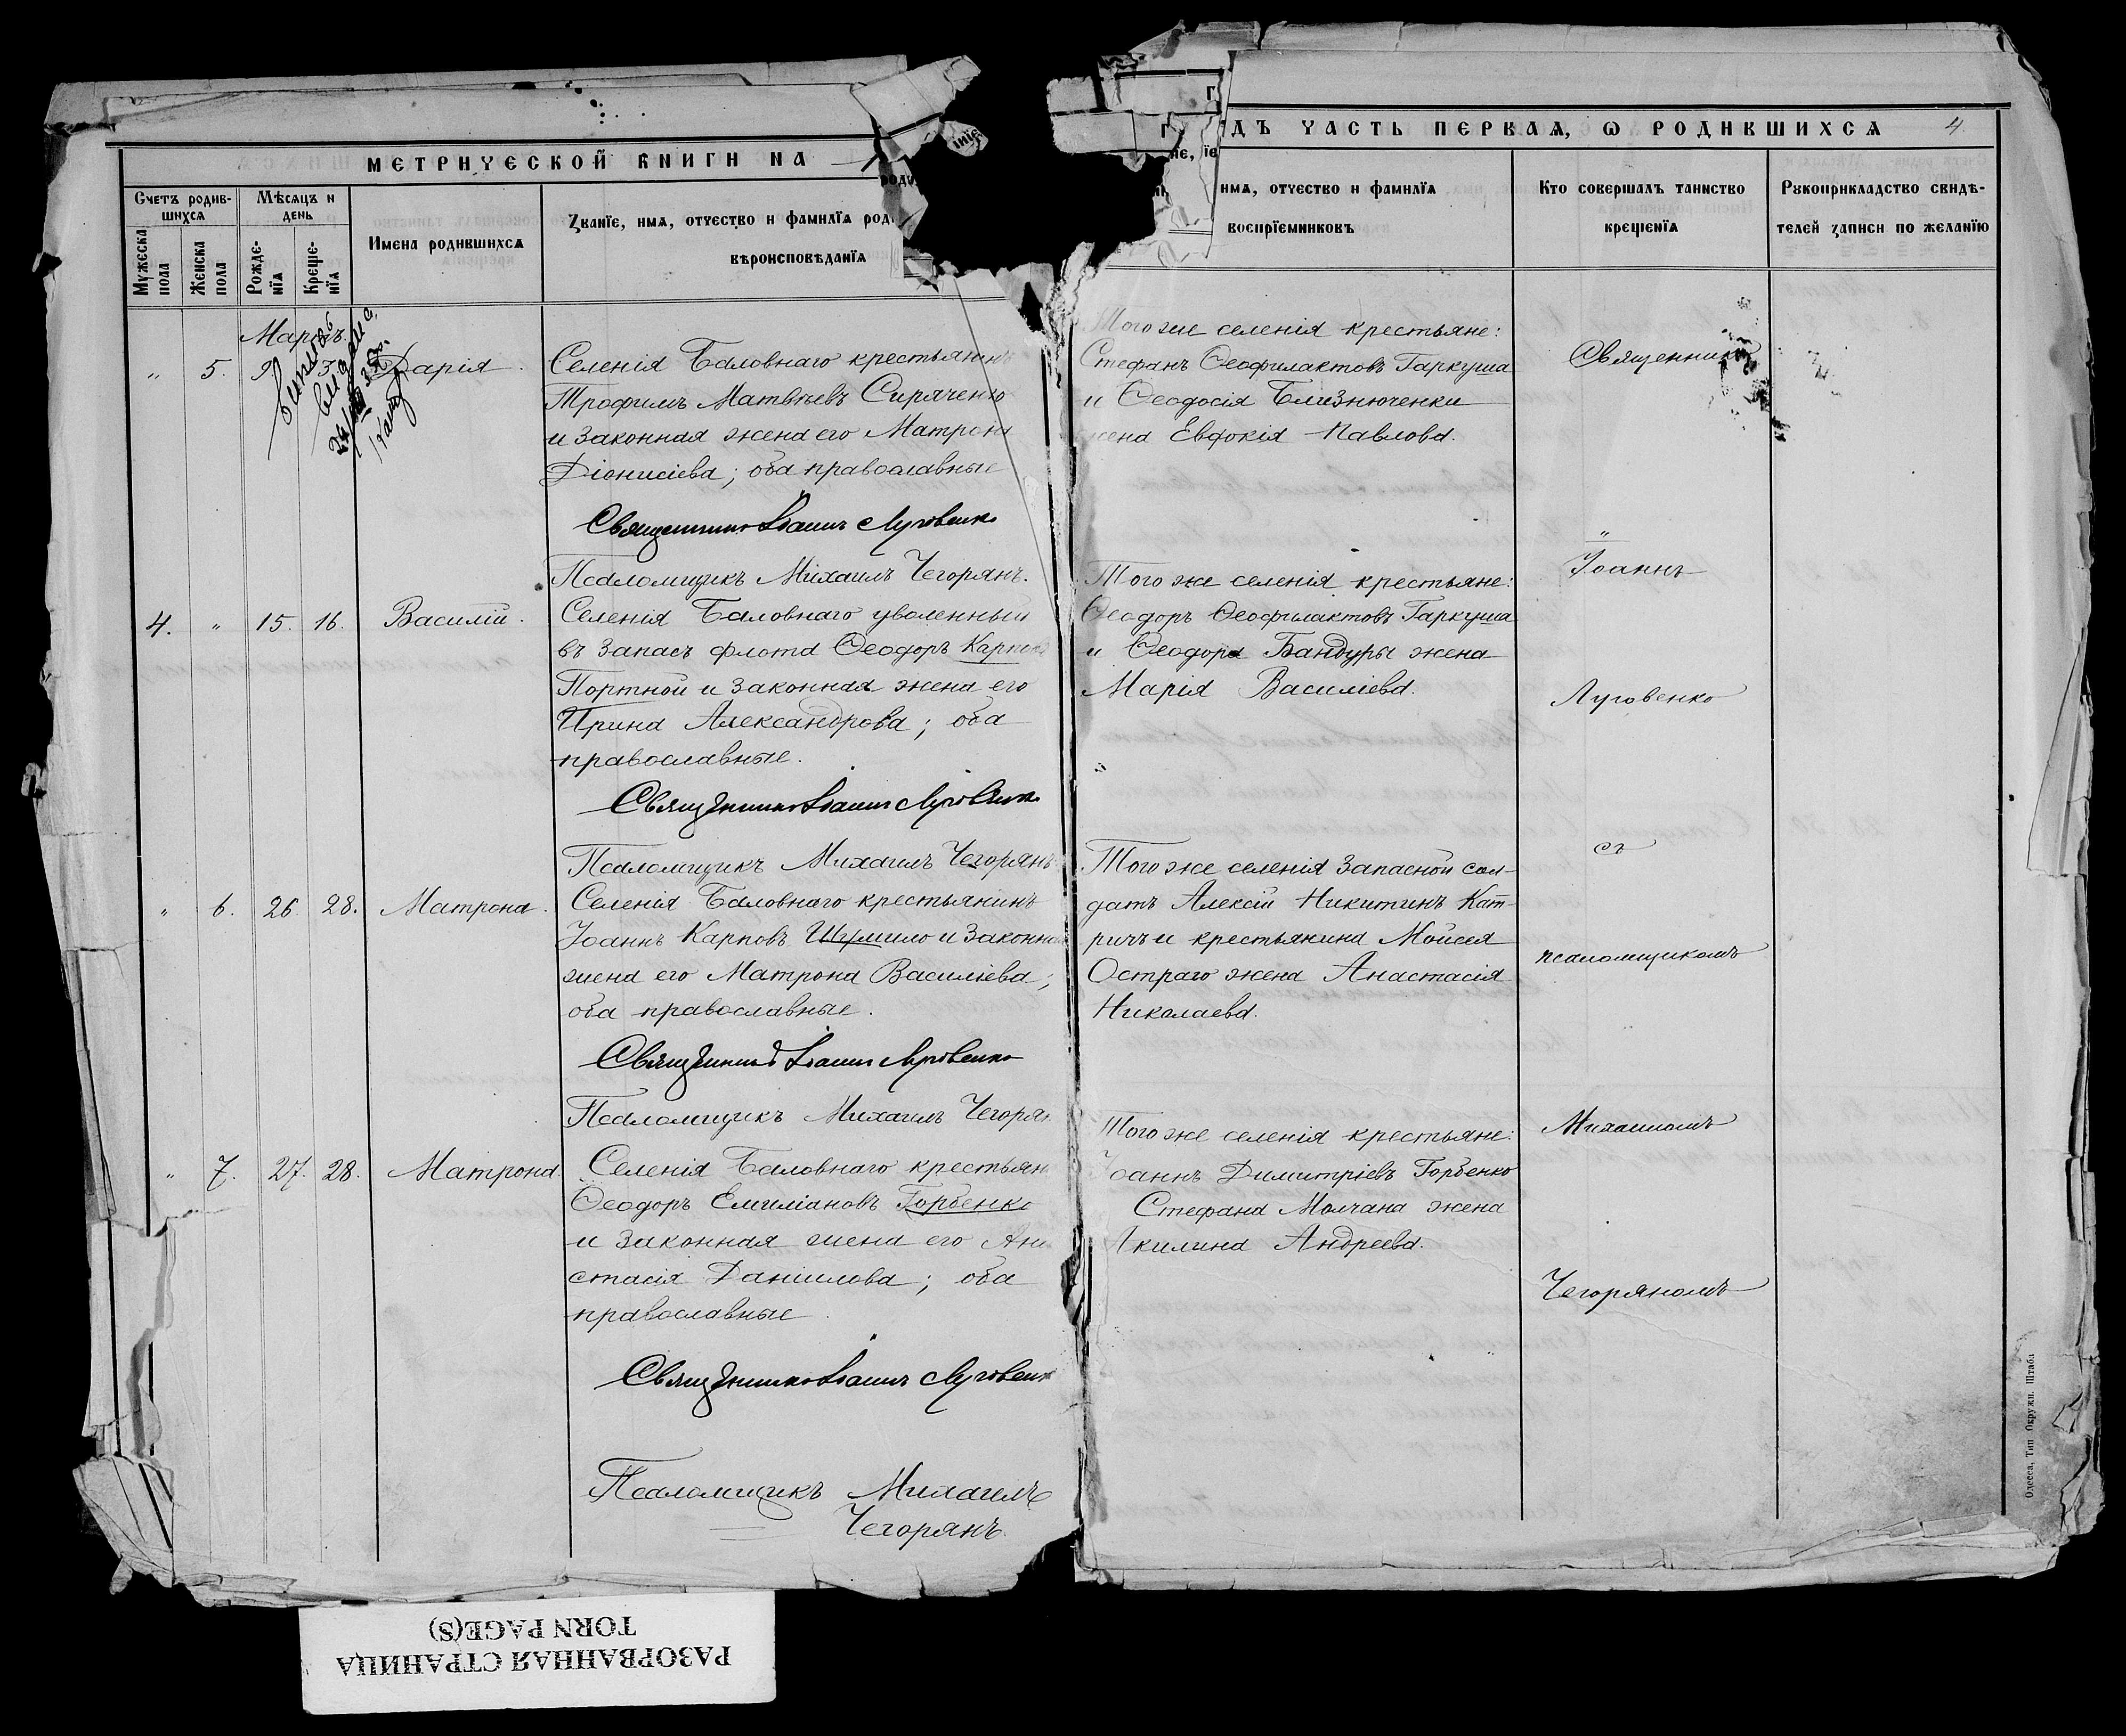 МЕТРИЧЕСКОЙ КНИГИ НА
Счетъ родив-
шихся
Мѣсяцъ и
день
Мужеска
пола
Женска
пола
Рожде-
нія
Креще-
нія
Имена родившихся
Званіе, имя, отчество и фамилія
вѣроисповѣданія
Мартъ
„ 5. 9. Дарія.
Селенія Баловнаго крестьянинъ
Трофимъ Матвѣевъ Сиряченко
и законная жена его Матрона
Діонисіева; оба православные
Священникъ Іоаннъ Луговенко
Псаломщикъ Михаилъ Чегорянъ.
4. „ 15. 16. Василій.
Селенія Баловнаго уволенный
въ запасъ флота Ѳеодоръ Карповъ
Портной и законная жена его
Ирина Александрова; оба
православные.
Священникъ Іоаннъ Луговенко
Псаломщикъ Михаилъ Чегорянъ
„ 6. 26. 28. Матрона.
Селенія Баловнаго крестьянинъ
Іоаннъ Карповъ Шумило и законная
жена его Матрона Василіева;
оба православные.
Священникъ Іоаннъ Луговенко
Псаломщикъ Михаилъ Чегорян
„ 7. 27. 28. Матрона.
Селенія Баловнаго крестьян
Ѳеодоръ Емиліановъ Горбенко
и законная жена его Ана
стасія Даніилова; оба
православные.
Священникъ Іоаннъ Луговенк
Псаломщикъ Михаилъ
Чегорянъ.
ДЪ ЧАСТЬ ПЕРВАЯ, Ѡ РОДИВШИХСЯ 4.
имя, отчество и фамилія
воспріемниковъ
Кто совершалъ таинство
крещенія
Рукоприкладство свидѣ-
телей записи по желанію
Того же селенія крестьяне:
Стефанъ Ѳеофилактовъ Гаркуша
и Ѳеодосія Близнюченки
жена Евфокія Павлова.
Того же селенія крестьяне:
Ѳеодоръ Ѳеофилактовъ Гаркуша
и Ѳеодора Бандуры жена
Марія Василіева.
Того же селенія запасной сол-
датъ Алексій Никитинъ Кат-
ричъ и крестьянина Мойсея
Остраго жена Анастасія
Николаева.
Того же селенія крестьяне:
Іоаннъ Димитріевъ Горбенко
Стефана Молчана жена
Акилина Андреева.
Священникъ
„
Іоаннъ
Луговенко
съ
псаломщикомъ
Михаиломъ
Чегоряномъ
Одесса, Тип Окружн. Штаба
РАЗОРВАННАЯ СТРАНИЦА
TORN PAGE(S)